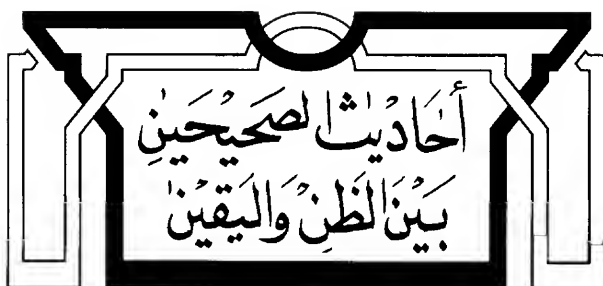 أحاديث الصحيحين
بين الظن واليقين